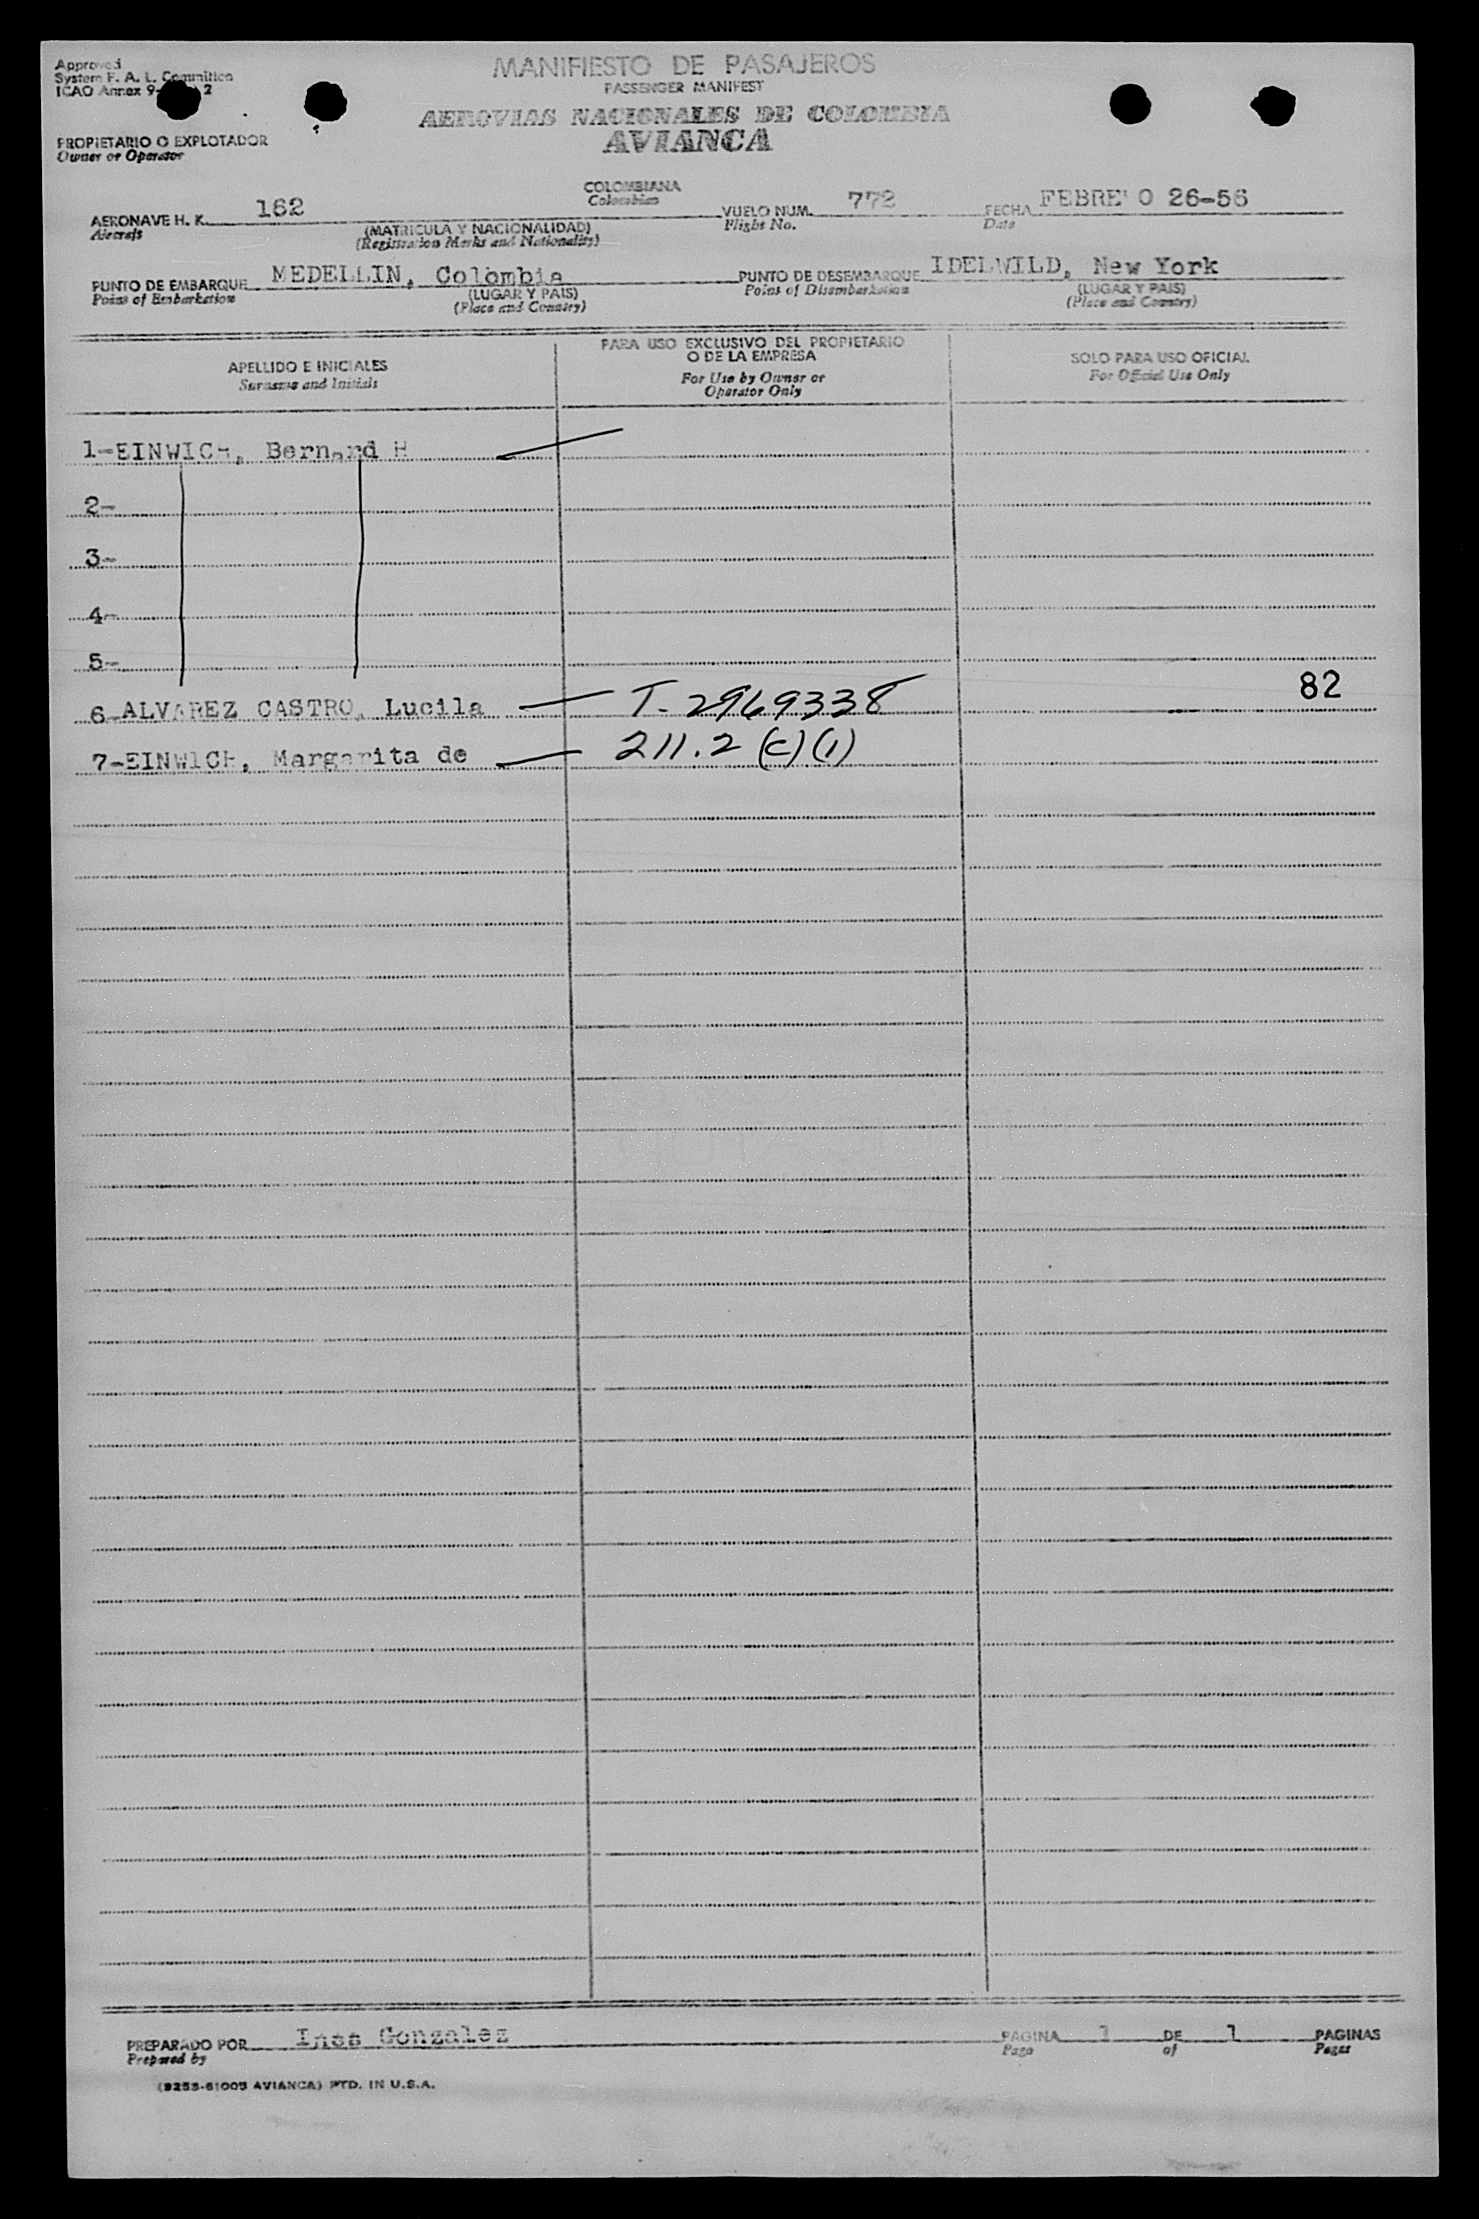 Approved
System F. A. L. Committee
ICAO Annex 9- 2
MANIFIESTO DE PASAJEROS
PASSENGER MANIFEST
AEROVIAS NACIONALES DE COLOMBIA
AVIANCA
PROPIETARIO O EXPLOTADOR
Owner or Operator
COLOMBIANA
Colombian
AERONAVE H. K. 162 VUELO NUM. 772 FECHA FEBRE O 26-56
Aircraft (MATRICULA Y NACIONALIDAD) Flight No. Date
(Registration Marks and Nationality)
PUNTO DE EMBARQUE MEDELLIN, Colombia PUNTO DE DESEMBARQUE IDELWILD, New York
Point of Embarkation (LUGAR Y PAIS) Point of Disembarkation (LUGAR Y PAIS)
(Place and Country) (Place and Country)
APELLIDO E INICIALES
Surname and Initials
PARA USO EXCLUSIVO DEL PROPIETARIO
O DE LA EMPRESA
For Use by Owner or
Operator Only
SOLO PARA USO OFICIAL
For Official Use Only
1-EINWICH, Bernard H
2-
3-
4-
5-
82
6-ALVAREZ CASTRO, Lucila T-2969338
7-EINWICH, Margarita de 211.2 (c)(1)
PREPARADO POR Ines Gonzalez PAGINA 1 DE 1 PAGINAS
Prepared by Page of Pages
(9253-61005 AVIANCA) PTD. IN U.S.A.